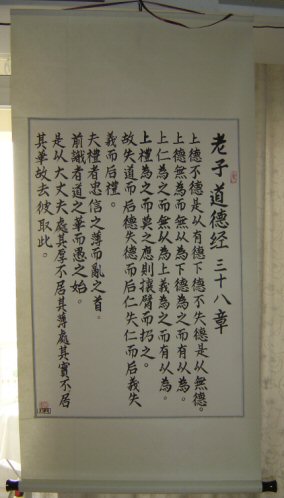 老子道德经 三十八章
上德不德是以有德下德不失德是以無德。
上德無為而無以為下德為之而有以為。
上仁為之而無以為上義為之而有以為。
上禮為之而莫之應則攘臂而扔之。
故失道而后德失德而后仁失仁而后義失
義而后禮。
夫禮者忠信之薄而亂之首。
前識者道之華而愚之始。
是以大丈夫處其厚不居其薄處其實不居
其華故去彼取此。